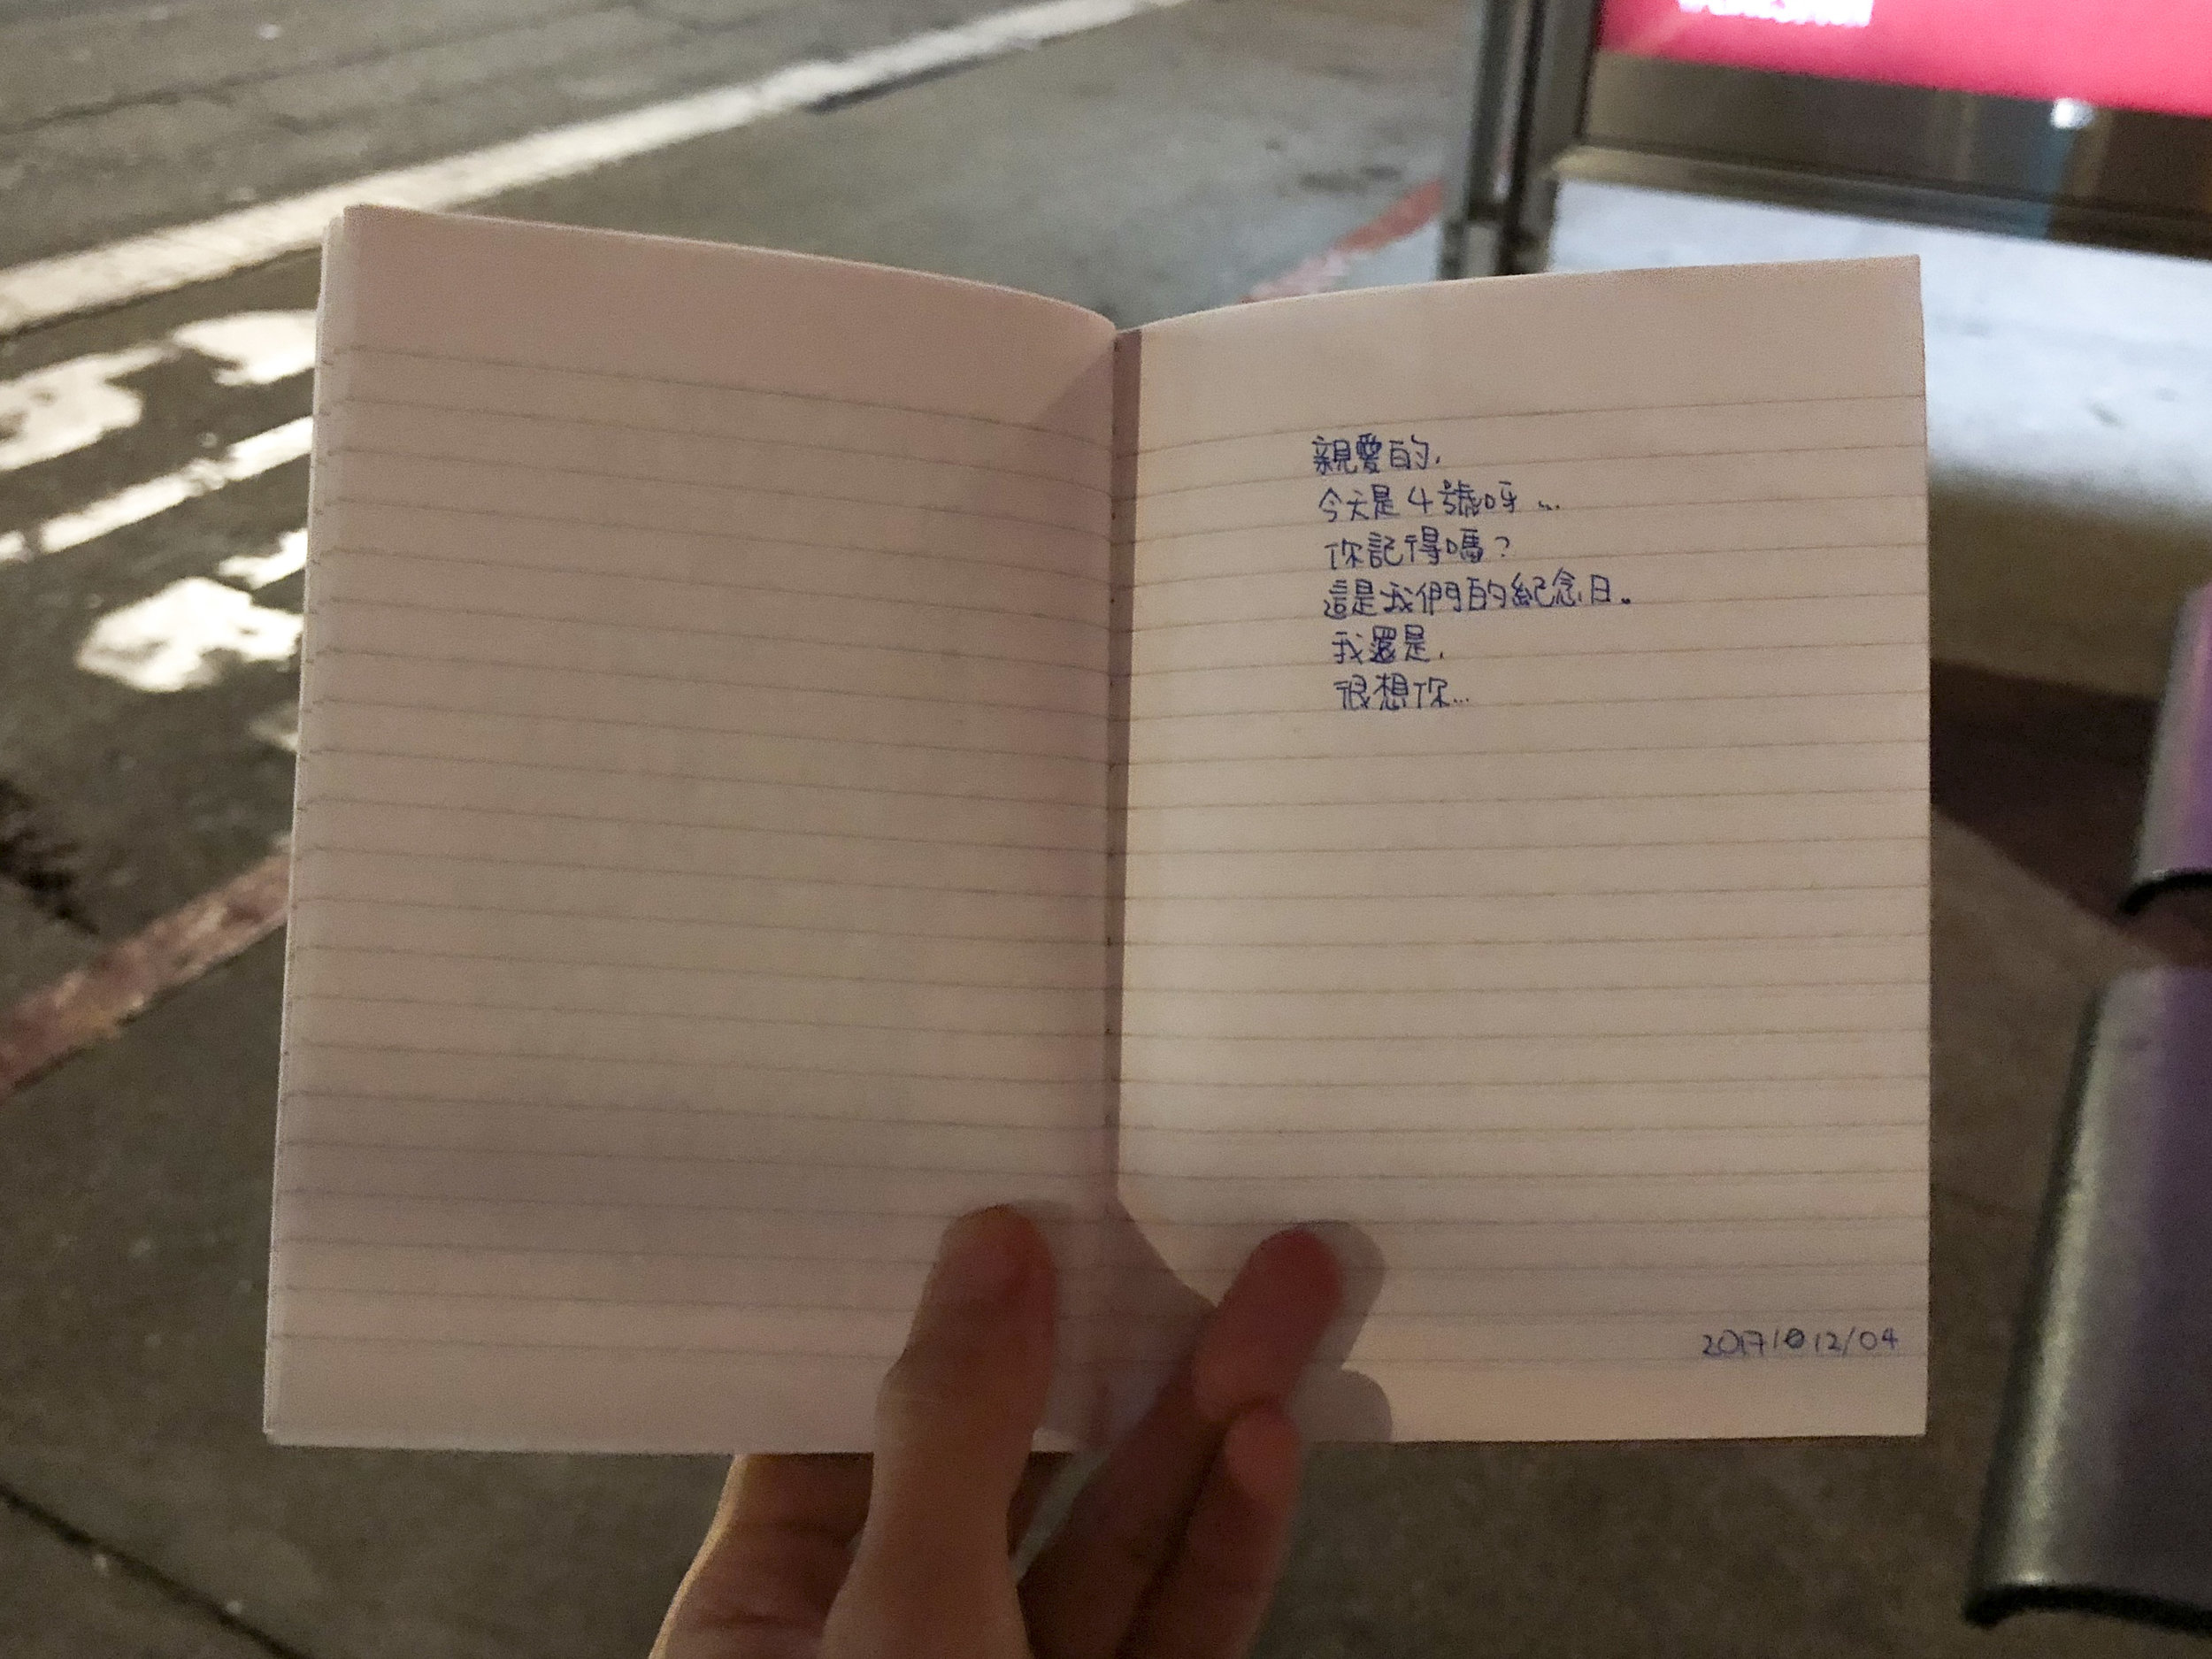 親愛的,
今天是4號呀...
你記得嗎?
這是我們的紀念日。
我還是,
很想你...
2017/12/04